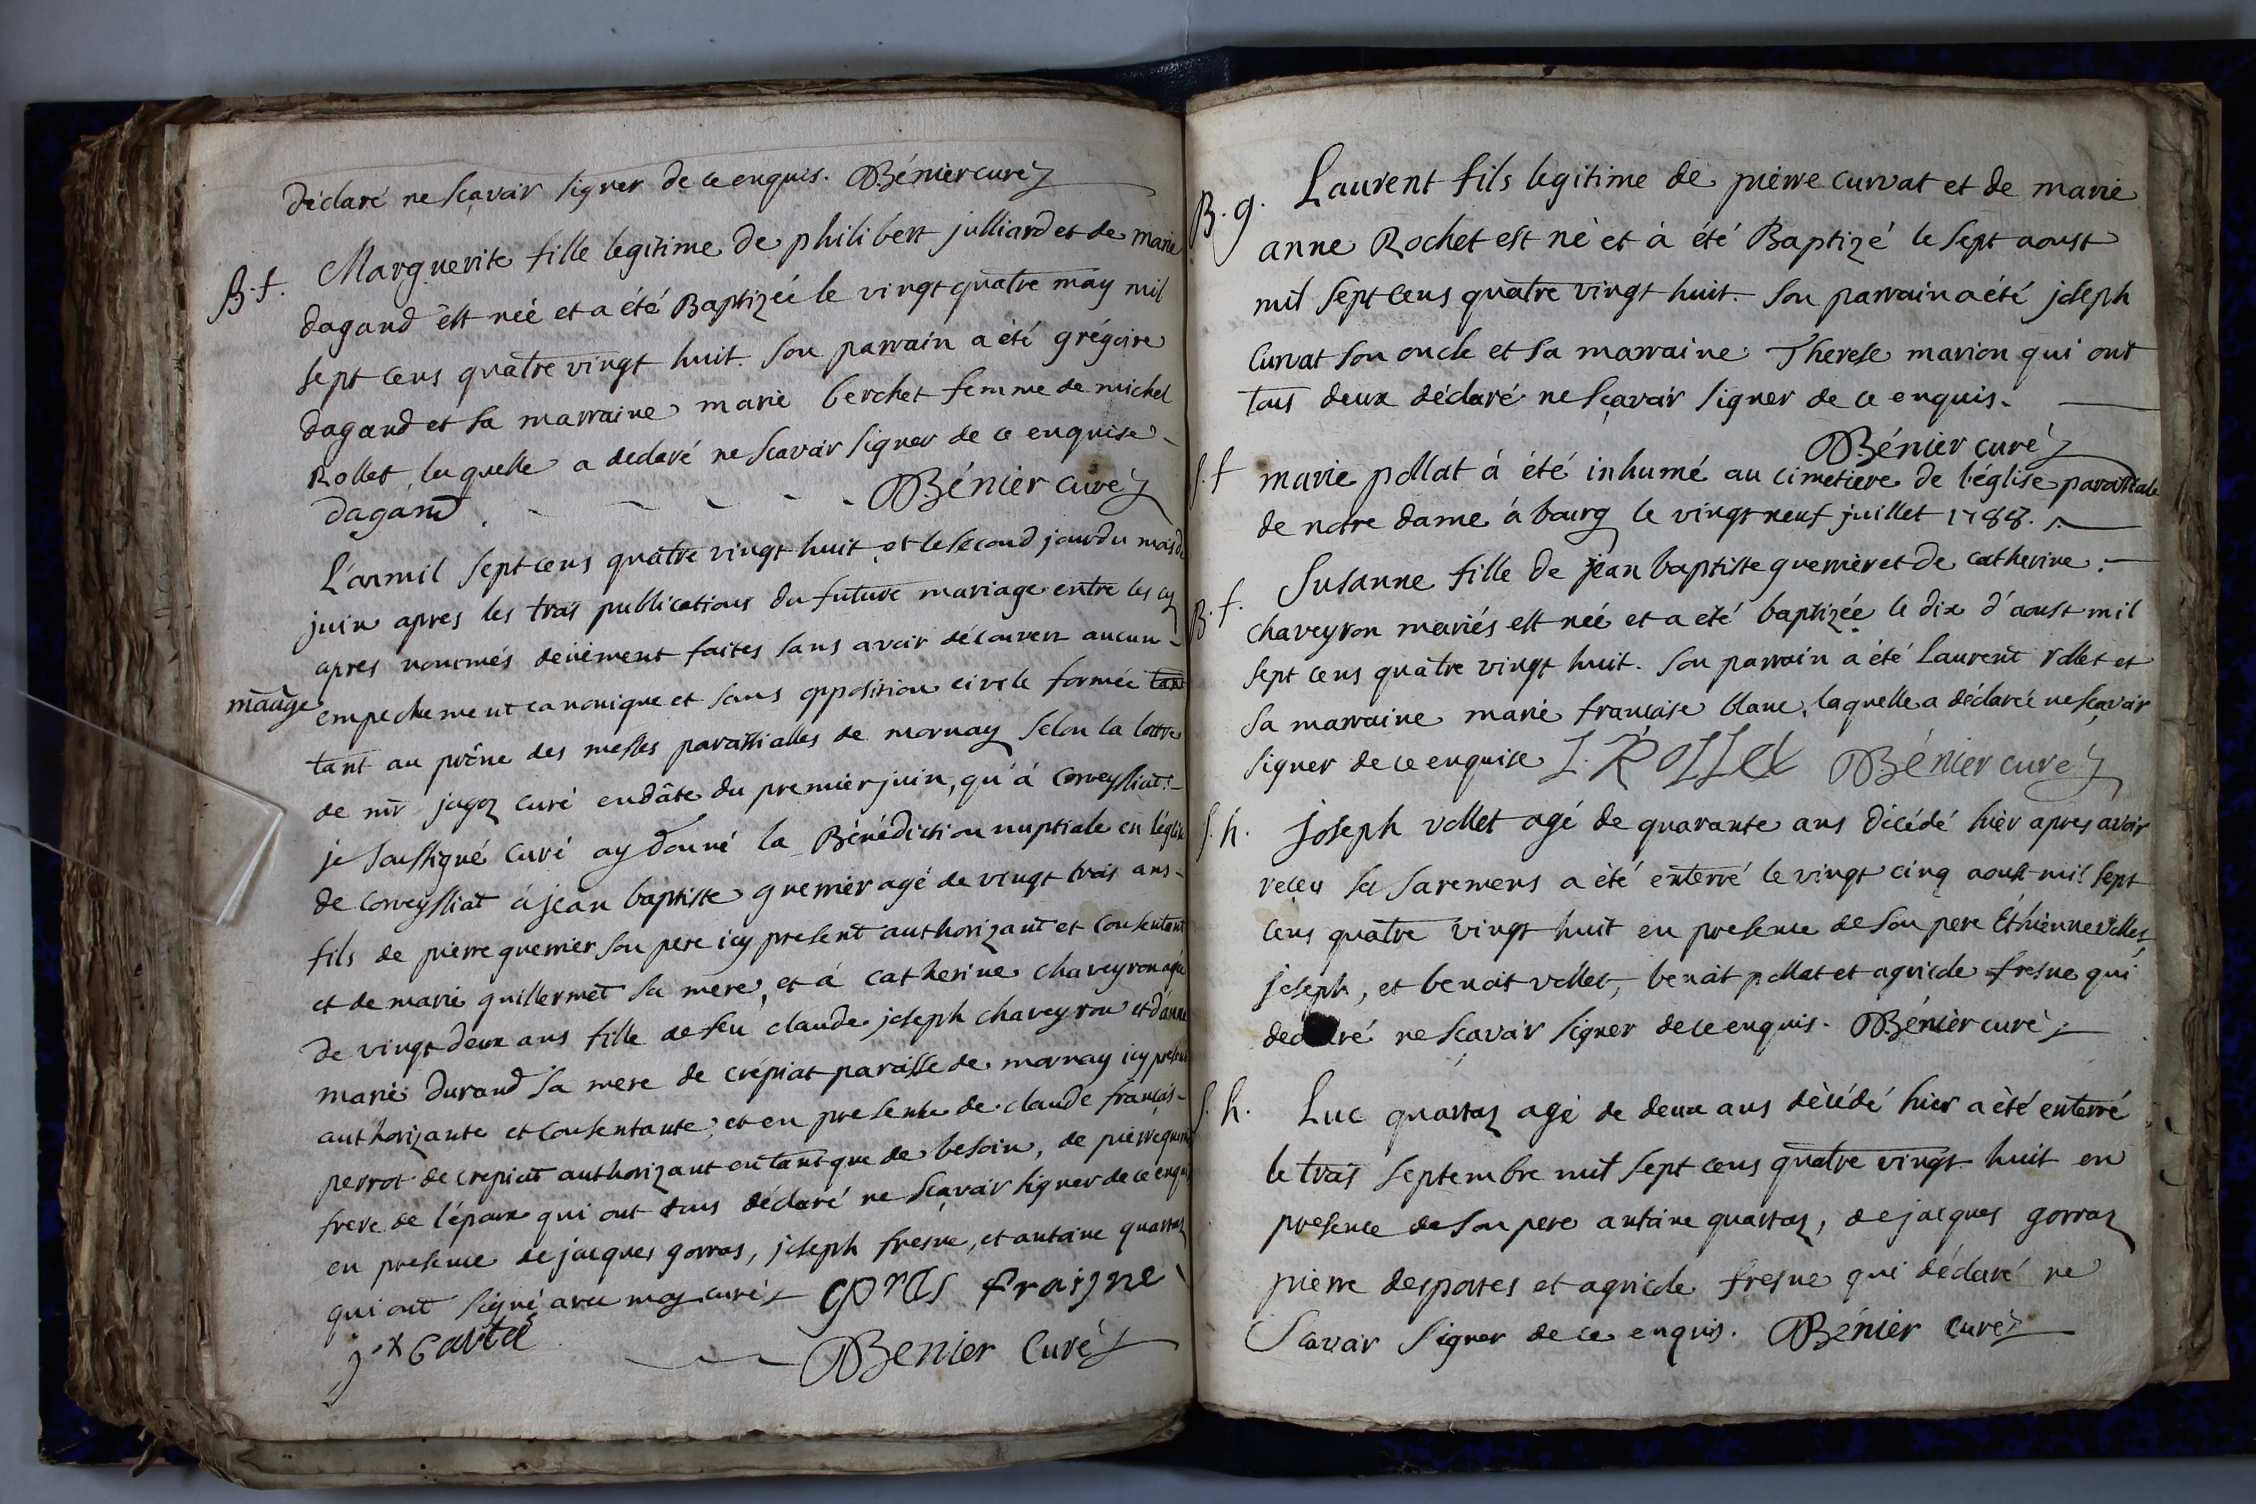 déclaré ne sçavoir signer de ce enquis. Bénier curé
B. f. Marguerite fille legitime de philibert julliard et de marie
dagand est neé et a été Baptizeé le vingt quatre may mil
sept cens quatre vingt huit. son parrain a été grégoire
dagand et sa marraine marie berchet femme de michel
Rollet, laquelle a declaré ne scavoir signer de ce enquise
dagand. Bénier curé
L'an mil sept cens quatre vingt huit et le second jour du mois de
juin apres les trois publications du future mariage entre les cy
apres nommés deüement faites sans avoir découvert aucun
mãage empechement canonique et sans opposition civile formeé tant
tant au prône des messes paroissialles de mornay selon la lettre
de mr jagoz curé en dâte du premier juin, qu'à Corveyssiat
je soussigné curé ay donné la Bénédiction nuptiale en l'églis
de Corveyssiat à jean baptiste guerrier agé de vingt trois ans
fils de pierre guerrier son pere icy present authorizant et consentant
et de marie guillermet sa mere, et à catherine chaveyron ageé
de vingt deux ans fille de feu claude joseph chaveyron et d'anne
marie durand sa mere de crépiat paroisse de mornay icy presente
authorizante et consentante, et en presence de claude françois
perrot de crepiat authorizant en tant que de besoin, de pierre guerrier
frere de l'époux qui ont tous déclaré ne sçavoir signer de ce enquis
en presence de jacques gorras, joseph fresne, et antoine quartaz
qui ont signé avec moy curé gorras fraisne
Benier Curé
B. g. Laurent fils legitime de pierre curvat et de marie
anne Rochet est né et à été Baptizé le sept aoust
mil sept cens quatre vingt huit. son parrain a été joseph
Curvat son oncle et sa marraine Therese marion qui ont
tous deux déclaré ne sçavoir signer de ce enquis.
Bénier curé
S. f marie pollat à été inhumé au cimetiere de l'église paroissiale
de notre dame à bourg le vingt neuf juillet 1788.
B. f. Susanne fille de jean baptiste guerrier et de catherine
chaveyron mariés est neé et a eté baptizée le dix d'aoust mil
sept cens quatre vingt huit. son parrain a été Laurent rollet et
sa marraine marie francoise blanc, laquelle a déclareé ne sçavoir
signer de ce enquise L. Rollet Bénier curé
S. h. Joseph vollet agé de quarante ans décédé hier apres avoir
reçeu ses saremens a été enterré le vingt cinq aoust mil sept
cens quatre vingt huit en presence de son pere Ethienne vollet,
joseph, et benoit vollet, benoit pollat et agricole fresne qui
declaré ne sçavoir signer de ce enquis. Bénier curé
S. h. Luc quartaz agé de deux ans décédé hier a été enterré
le trois septembre mil sept cens quatre vingt huit en
presence de son pere antoine quartaz, de jacques gorraz
pierre desportes et agricole fresne qui déclaré ne
Scavoir signer de ce enquis. Bénier curé